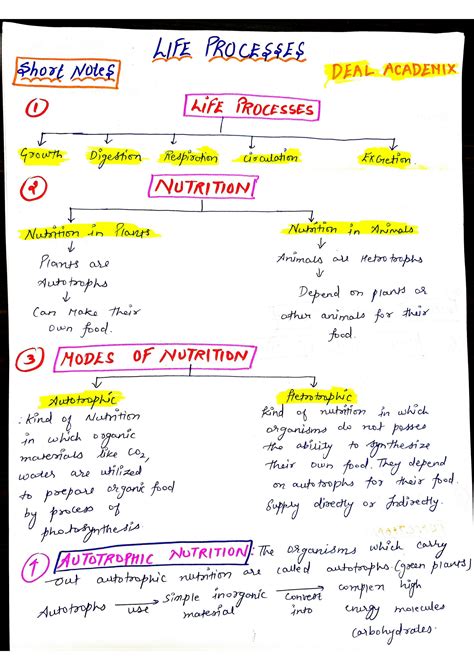 LIFE PROCESSES
Short Notes
DEAL ACADENIX
1 LIFE PROCESSES
Growth Digestion Respiration Circulation Excretion
2 NUTRITION
Nutrition in Plants
Nutrition in Animals
Plants are
Autotrophs
Can Make their
own food.
Animals are Hetrotrophs
Depend on plants or
other animals for their
food.
3 MODES OF NUTRITION
Autotrophic
: Kind of Nutrition
in which organic
materials like CO2,
water are utilized
to prepare organic food
by process of
photosynthesis
Hetrotrophic
Kind of nutrition in which
organisms do not posses
the ability to synthesize
their own food. They depend
on autotrophs for their food.
Supply directly or Indirectly.
4 AUTOTROPHIC NUTRITION : The organisms which carry
out autotrophic nutrition are called autotrophs (green plants)
Autotrophs use simple inorganic material convert into complex high energy molecules
carbohydrates.